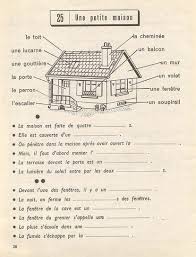 25 Une petite maison
le toit
la cheminée
une lucarne
un balcon
une gouttière
un mur
la porte
un volet
le perron
une fenêtre
l'escalier
un soupirail
La maison est faite de quatre s.
Elle est couverte d'un .
On pénètre dans la maison après avoir ouvert la .
Mais, il faut d'abord monter l' .
La terrasse devant la porte est un .
La lumière du soleil entre par les deux s.
Devant l'une des fenêtres, il y a un .
La nuit, on ferme les s des fenêtres.
La fenêtre de la cave est un .
La fenêtre du grenier s'appelle une .
La pluie s'écoule dans une .
La fumée s'échappe par la .
26